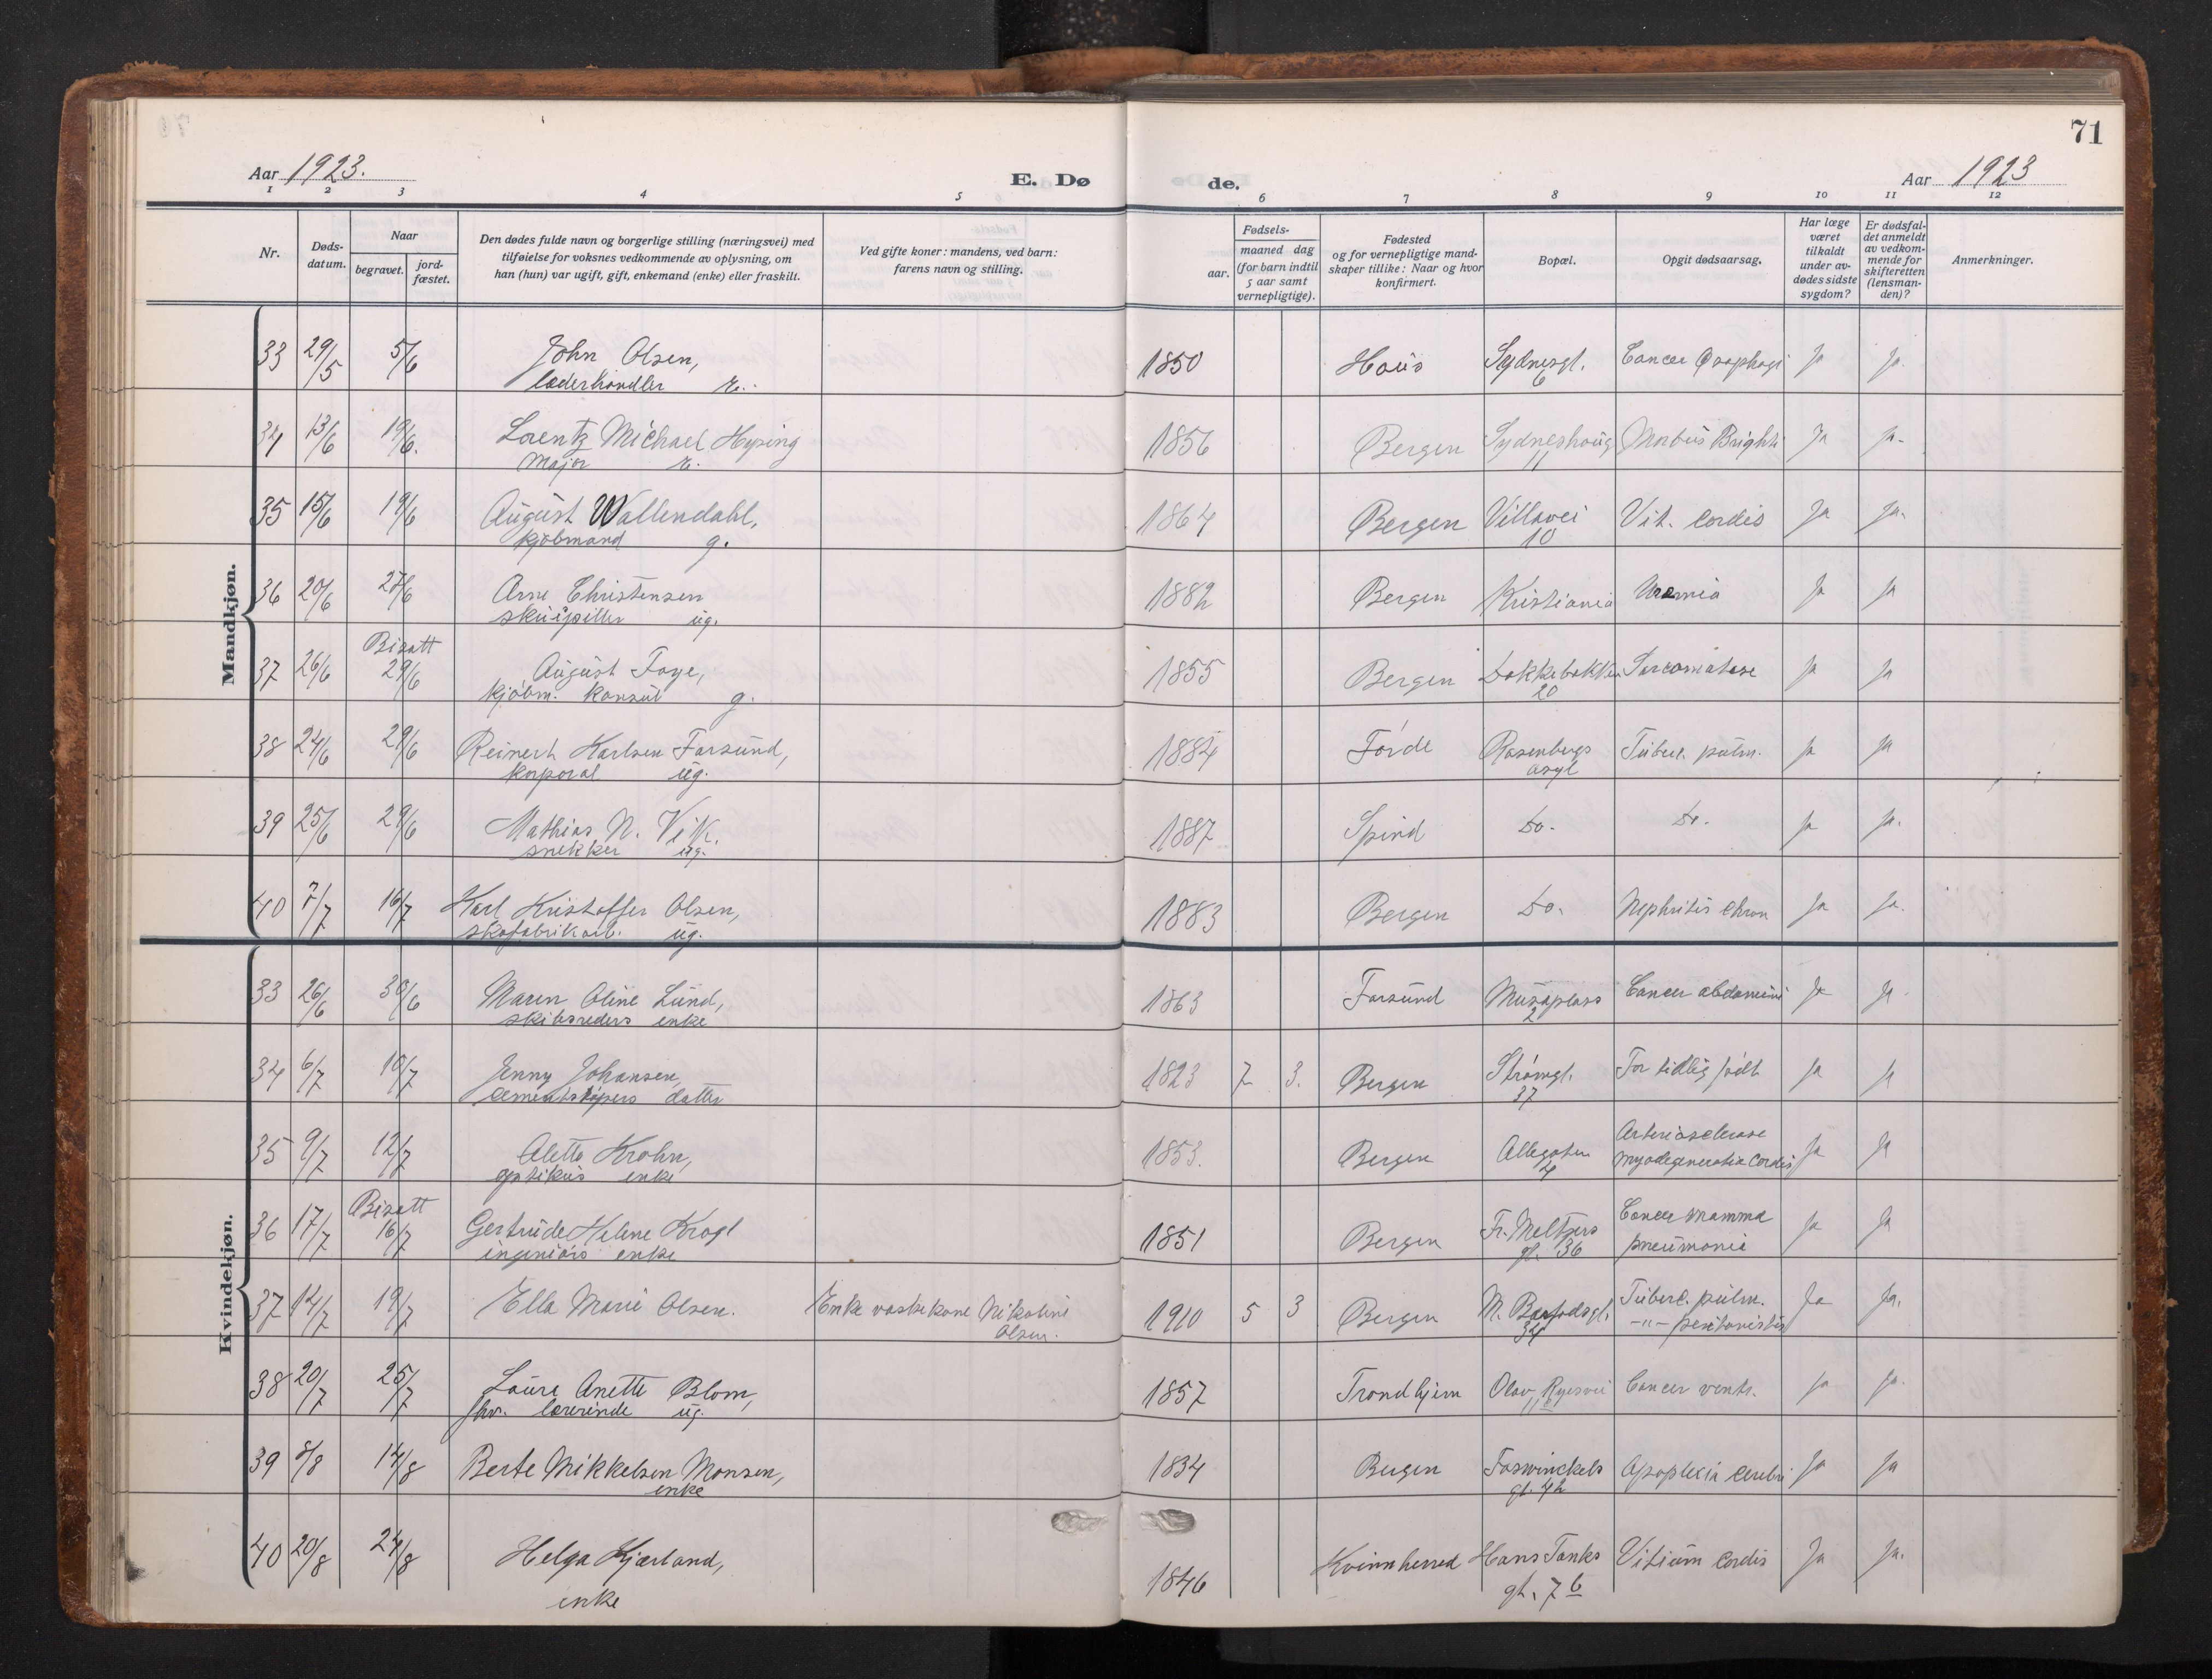 71
Aar 1923. E. Dø de. Aar 1923
1 2 3 4 5 6 7 8 9 10 11 12
Nr. Døds-datum. Naar begravet. jord-fæstet. Den dødes fulde navn og borgerlige stilling (næringsvei) med tilføielse for voksnes vedkommende av oplysning, om han (hun) var ugift, gift, enkemand (enke) eller fraskilt. Ved gifte koner: mandens, ved barn: farens navn og stilling. Fødsels- aar. maaned dag (for barn indtil 5 aar samt vernepligtige). Fødested og for vernepligtige mandskaper tillike: Naar og hvor konfirmert. Bopæl. Opgit dødsaarsag. Har læge været tilkaldt under avdødes sidste sygdom? Er dødsfaldet anmeldt av vedkommende for skifteretten (lensmanden)? Anmerkninger.
Mandkjøn.
33 29/5 5/6 John Olsen, 1850 Haus Sydnesgt. Cancer Øsophagi Ja Ja.
læderhandler E. 6
34 13/6 19/6. Lorentz Michael Hysing 1856 Bergen Sydneshaug Morbus Brighti Ja Ja.
Major E. 11
35 15/6 19/6 August Wallendahl, 1864 Bergen Villavei Vit. Cordis Ja Ja.
kjøbmand g. 10
36 20/6 27/6 Arne Christensen 1882 Bergen Kristiania Uræmia Ja Ja
skuespiller ug.
Bisatt
37 26/6 29/6 August Faye, 1855 Bergen Dokkebakken Sarcomatose Ja Ja
kjøbm. konsul g. 20
38 24/6 29/6 Reinert Karlsen Farsund, 1884 Førde Rosenbergs Tuberc. pulm. Ja Ja
korporal ug. asyl
39 25/6 29/6 Mathias N. Vik. 1887 Spind Do. Do. Ja Ja.
snekker ug.
40 7/7 16/7 Karl Kristoffer Olsen, 1883 Bergen Do. Nephritis chron Ja Ja.
skofabrikarb. ug.
Kvindekjøn.
33 26/6 30/6 Maren Oline Lund, 1863 Farsund Museplass Cancer abdomini Ja Ja.
skibsreders enke 2
34 6/7 10/7 Jenny Johansen, 1823 7 3. Bergen Strømgt. For tidlig født Ja Ja
cementstøpers datter 37
35 9/7 12/7 Alette Krohn, 1853. Bergen Allegaten Arteriosclerose Ja Ja
optikus enke 4 myodegeneratio Cordis
Bisatt
36 17/7 16/7 Gertrude Helene Krogl 1851 Bergen Fr. Meltzers Cancer Mamma Ja Ja
ingeniørs enke gt. 36 pneumonia
37 14/7 19/7 Ella Marie Olsen. Enke vaskekone Nikoline 1910 5 3 Bergen Tuberc. pulm. Ja Ja.
Olsen. 34 -"- peritonistis
38 20/7 25/7 Laura Anette Blom, 1857 Trondhjem Olav Ryesvei Cancer ventr. Ja Ja.
fhv. lærerinde ug. 11
39 8/8 14/8 Berte Mikkelsen Monsen, 1834 Bergen Foswinckels Apoplexia Cerebri Ja Ja
enke gt. 42
40 20/8 24/8 Helga Kjærland, 1846 Kvinnherred Hans Tanks Vitium Cordis Ja Ja.
enke gt. 7 b